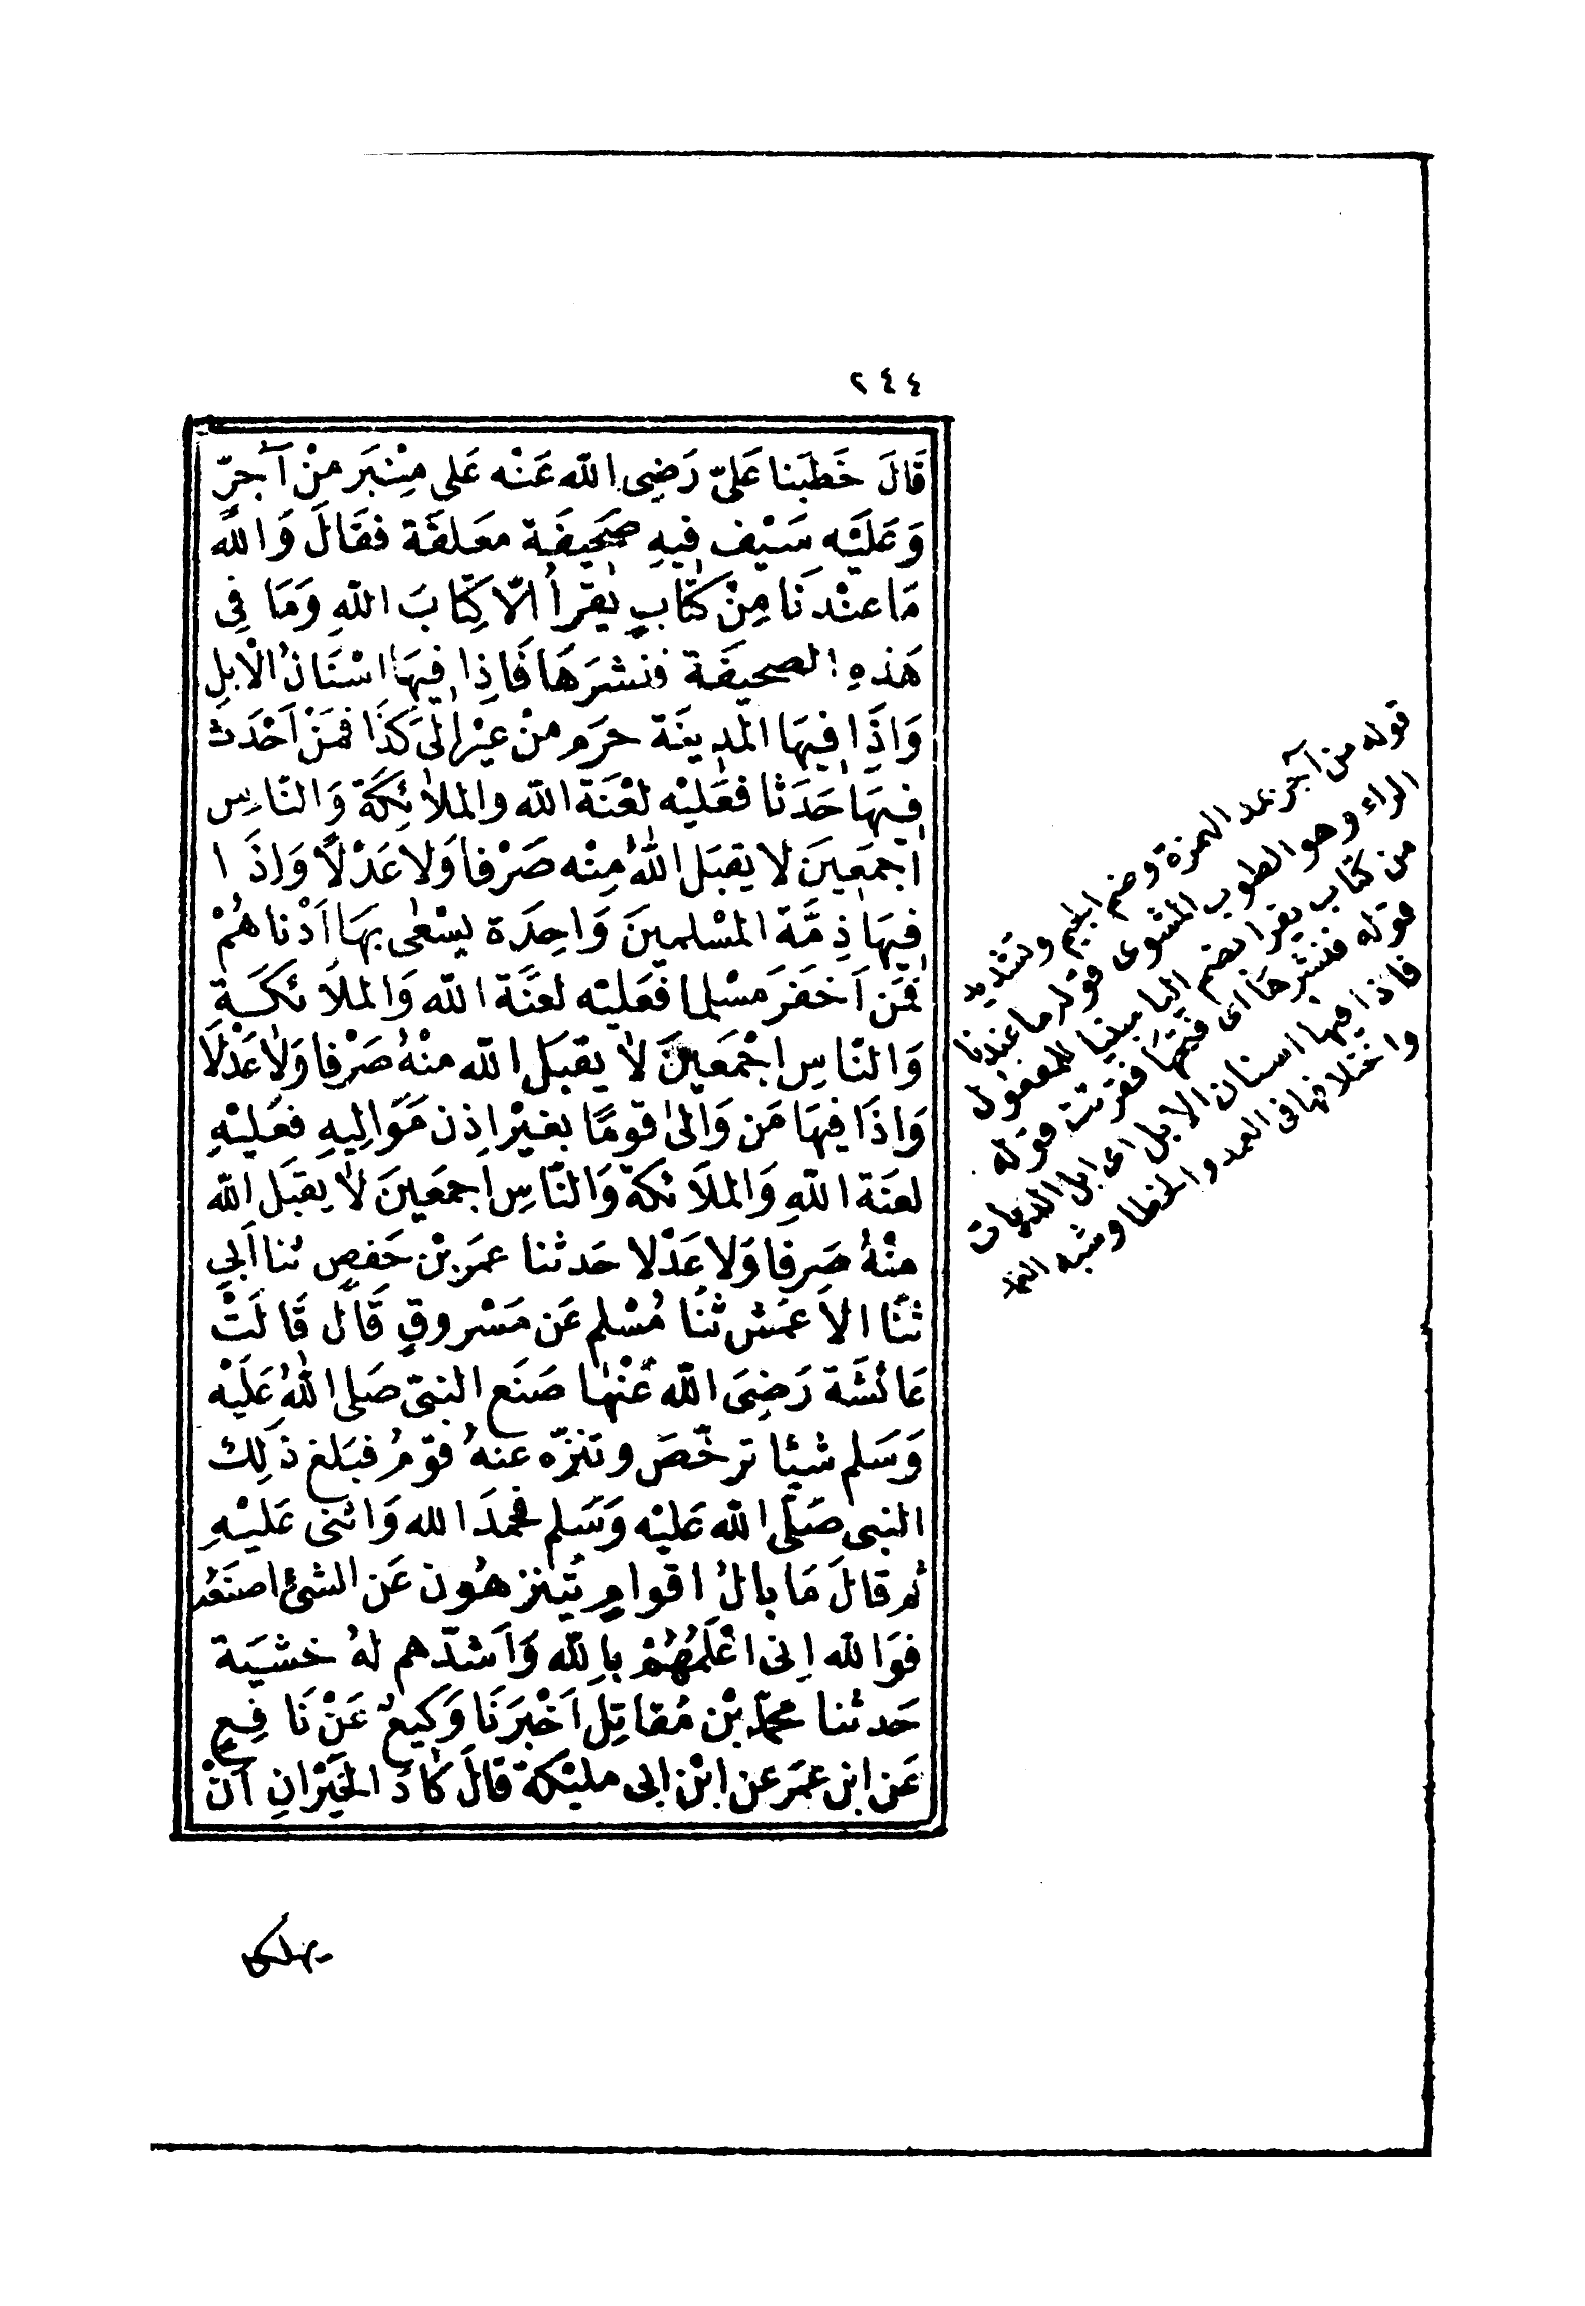 ٢٤٤
قَالَ خَطَبَنا عَلىّ رَضِى الله عَنْه عَلى مِنْبَر مِنْ آجرّ
وَعَلَيْه سَيْف فِيهِ صَحِيفَة معَلقَة فقَالَ وَالله
مَا عنْدنَا مِنْ كتَابٍ يُقرأ الّا كِتَابَ اللهِ وَمَا فِى
هَذهِ الصحيفَة فنشرَهَا فَاِذا فِيهَا اسْنَانُ الْابلِ
وَاذَا فِيهَا المدِينَة حرَم منْ عيْر الىَ كَذَا فمَنْ اَحْدَث
فِيهَا حَدَثا فعَليْه لعْنَة الله والملائِكَة وَالنّاسِ
اجمَعِينَ لا يقبَل اللهُ مِنْه صَرْفا وَلا عَدْلًا وَاذَا
فِيهَا ذِمَّة المسْلمِينَ وَاحِدَة يسْعٰى بهَا اَدْناهُمْ
فمَن اَخفَرَ مسْلما فعَليْه لعنَة الله وَالملَائكَة
وَالنّاسِ اجْمَعِينَ لَا يقبَل الله منْهُ صَرْفا وَلاعَدْلَا
وَاذَا فِيهَا مَن وَالىٰ قومًا بغيْر اِذن مَوَالِيهِ فعَليْهِ
لعنَة اللهِ وَالملَائكَة وَالنّاسِ اجمَعِينَ لَا يقبَل الله
منْهُ صَرفا وَلا عَدْلا حَدثنا عمَر بْن حَفصٍ ثنا اَبِي
ثنَا الاَعمَش ثنَا مُسْلم عَن مَسْروقٍ قَالَ قَالَتْ
عَائشَة رَضِىَ الله عَنْهَا صَنَع النبىّ صَلى اللهُ عَلَيْه
وَسَلم شيْئا ترخّصَ وتنزّه عَنهُ قوْمُ فبَلغ ذَلِك
النبى صَلّى الله عَليْه وَسَلم فحمدَ الله وَاثنى عَليْهِ
ثم قالَ مَا بالُ اقوامٍ يَتنزهُون عَن الشئ اصنَعُه
فوَالله اِنى اعْلَمُهُمْ باِلله وَاَشدّهم لهُ خشيَة
حَدثنا محمّد بْن مُقاتِل اَخْبَرَنَا وَكيعٌ عَنْ نَافِع
عَن ابن عمَر عن ابْن ابى مليْكة قالَ كادَ الخيَرْانِ اَنْ
يهلكا
قوله من آجر بمد الهمزة وضم الجيم وتشديد
الراء وهو الطوب المشوى قوله ما عندنا
من كتاب يقرا بضم اليا مبنيا للمفعول
قوله فنشرها اى فتحها فقرئت قوله
فاذا فيها اسنان الابل اى ابل الديات
واختلافها فى العمد والخطا وشبه العمد